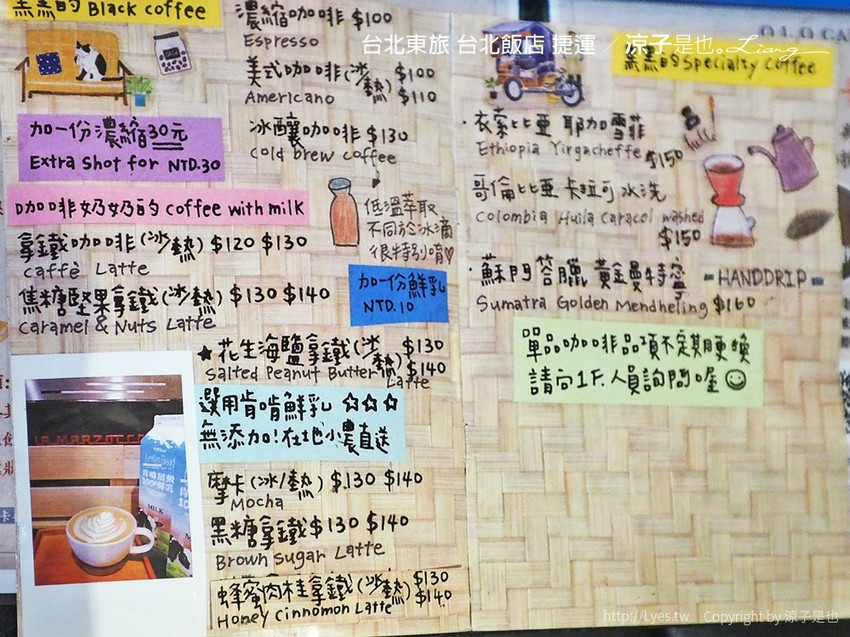 黑黑的 Black coffee
濃縮咖啡 $100
Espresso
美式咖啡(冰熱) $100
Americano $110
冰釀咖啡 $130
Cold brew coffee
加一份濃縮30元
Extra shot for NTD.30
咖啡奶奶的 coffee with milk
低溫萃取
不同於冰滴
很特別唷♡
拿鐵咖啡(冰熱) $120 $130
Caffè Latte
焦糖堅果拿鐵(冰熱) $130 $140
Caramel & Nuts Latte
加一份鮮乳
NTD.10
★花生海鹽拿鐵(冰熱) $130
Salted Peanut Butter Latte $140
選用肯啃鮮乳 ☆☆☆
無添加!在地小農直送
LA MARZOCCO
100%鮮乳
MILK
摩卡(冰/熱) $130 $140
Mocha
黑糖拿鐵 $130 $140
Brown Sugar Latte
蜂蜜肉桂拿鐵(冰熱) $130
Honey Cinnomon Latte $140
黑黑的 Specialty Coffee
·衣索比亞 耶加雪菲
Ethiopia Yirgacheffe $150
哥倫比亞卡拉可水洗
Colombia Huila Caracol washed
$150
·蘇門答臘 黃金曼特寧 -HANDDRIP-
Sumatra Golden Mendheling $160
單品咖啡品項不定期更換
請向1F.人員詢問喔☺
台北東旅 台北飯店 捷運 / 涼子是也。Liang
http://Lyes.tw Copyright by 涼子是也